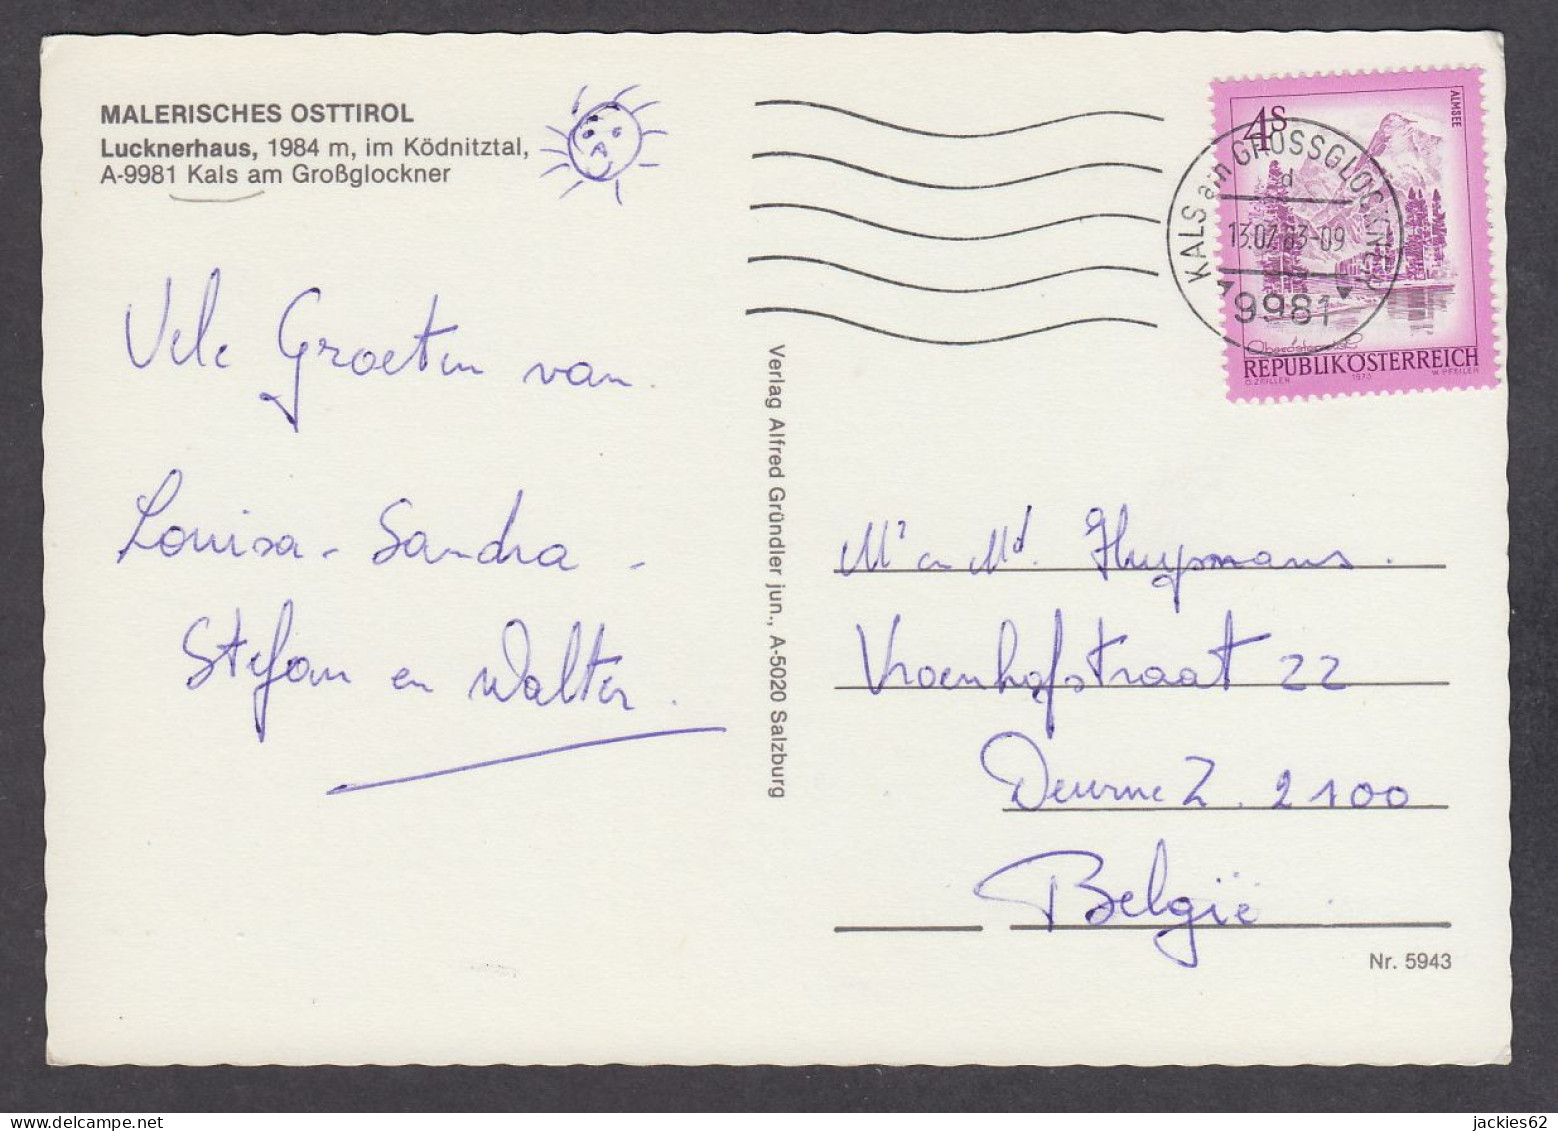 MALERISCHES OSTTIROL
Lucknerhaus, 1984 m, im Ködnitztal,
A-9981 Kals am Großglockner
Vele Groeten van
Louisa - Sandra -
Stefan en Walter.
Verlag Alfred Gründler jun., A-5020 Salzburg
4S
ALMSEE
KALS am GROSSGLOCKNER
d
13.07.83-09
9981
Oberösterreich
REPUBLIK ÖSTERREICH
O. ZEILLER 1973 W. PFEILER
Mr en Md. Huysmans.
Vroenhofstraat 22
Deurne Z. 2100
België
Nr. 5943
jackies62